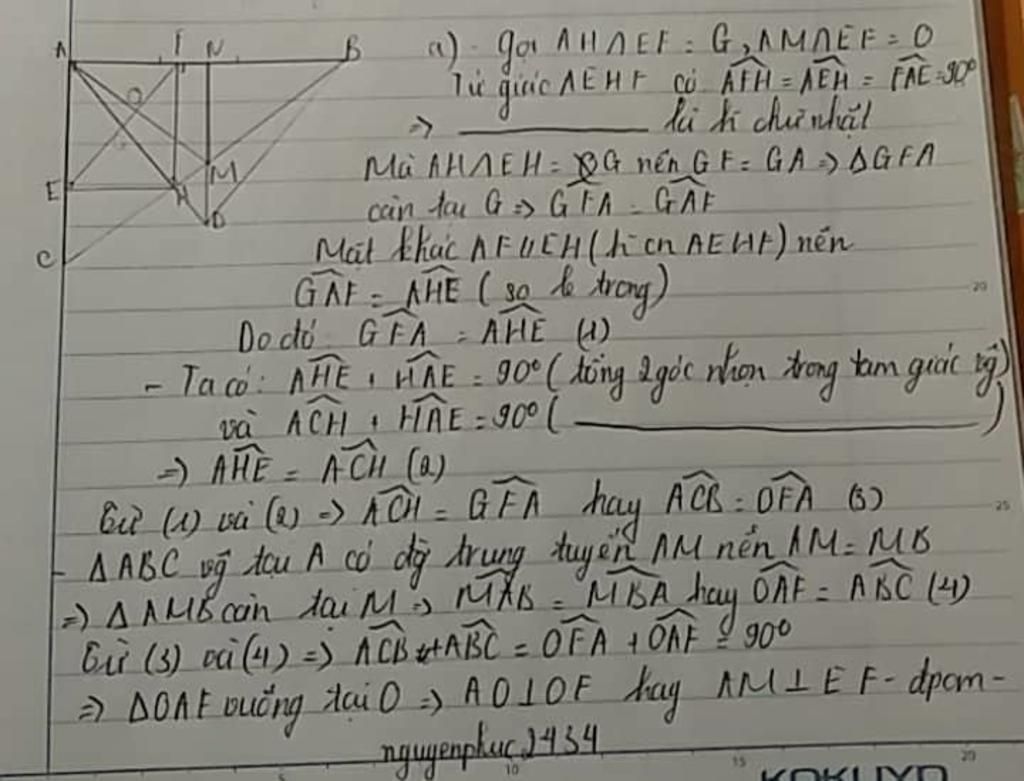 A I N B
O
E M
H
D
C
a) - gọi AH∩EF = G, AM∩EF = O
Tứ giác AEHF có AFH = AEH = FAE = 90°
=> ________ là h chữ nhật
Mà AH∩EH = G nên GF = GA => ΔGFA
cân tại G => GFA = GAF
Mặt khác AF//EH (h cn AEHF) nên
GAF = AHE (so le trong)
Do đó: GFA = AHE (1)
- Ta có: AHE + HAE = 90° (tổng 2 góc nhọn trong tam giác vg)
và ACH + HAE = 90° (________)
=> AHE = ACH (2)
Từ (1) và (2) => ACH = GFA hay ACB = OFA (3)
- ΔABC vg tại A có đg trung tuyến AM nên AM = MB
=> ΔAMB cân tại M => MAB = MBA hay OAF = ABC (4)
Từ (3) và (4) => ACB + ABC = OFA + OAF = 90°
=> ΔOAF vuông tại O => AO⊥OF hay AM⊥EF - dpcm -
nguyenphuc2434
20
25
10
15
20
KOKUYO